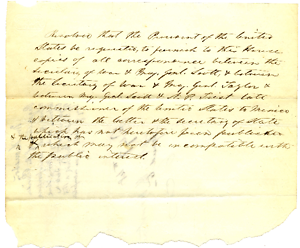 Resolved that the President of the United
States be requested, to furnish to this House
copies of all correspondence between the
Secretary of War & Maj. Genl. Scott, & between
the Secretary of War & Maj. Genl. Taylor &
between Maj. Genl. Scott & N. P. Trist late
commissioner of the United States to Mexico
& between the latter & Secretary of State
which has not heretofore been published
& the publication of
which may not be incompatible with
the public interest.